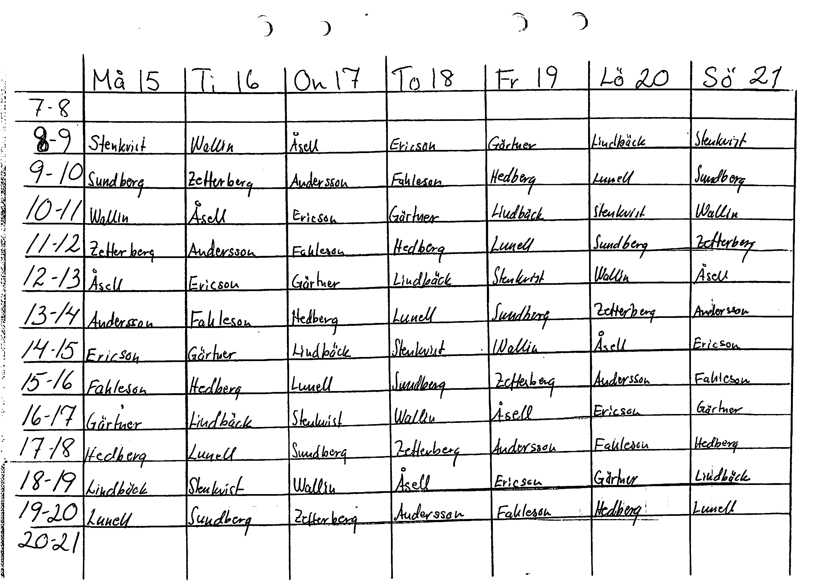 Må 15 Ti 16 On 17 To 18 Fr 19 Lö 20 Sö 21
7-8
8-9 Stenkvist Wallin Åsell Ericson Gärtner Lindbäck Stenkvist
9-10 Sundberg Zetterberg Andersson Fahleson Hedberg Lunell Sundberg
10-11 Wallin Åsell Ericson Gärtner Lindbäck Stenkvist Wallin
11-12 Zetterberg Andersson Fahleson Hedberg Lunell Sundberg Zetterberg
12-13 Åsell Ericson Gärtner Lindbäck Stenkvist Wallin Åsell
13-14 Andersson Fahleson Hedberg Lunell Sundberg Zetterberg Andersson
14-15 Ericson Gärtner Lindbäck Stenkvist Wallin Åsell Ericson
15-16 Fahleson Hedberg Lunell Sundberg Zetterberg Andersson Fahleson
16-17 Gärtner Lindbäck Stenkvist Wallin Åsell Ericson Gärtner
17-18 Hedberg Lunell Sundberg Zetterberg Andersson Fahleson Hedberg
18-19 Lindbäck Stenkvist Wallin Åsell Ericson Gärtner Lindbäck
19-20 Lunell Sundberg Zetterberg Andersson Fahleson Hedberg Lunell
20-21